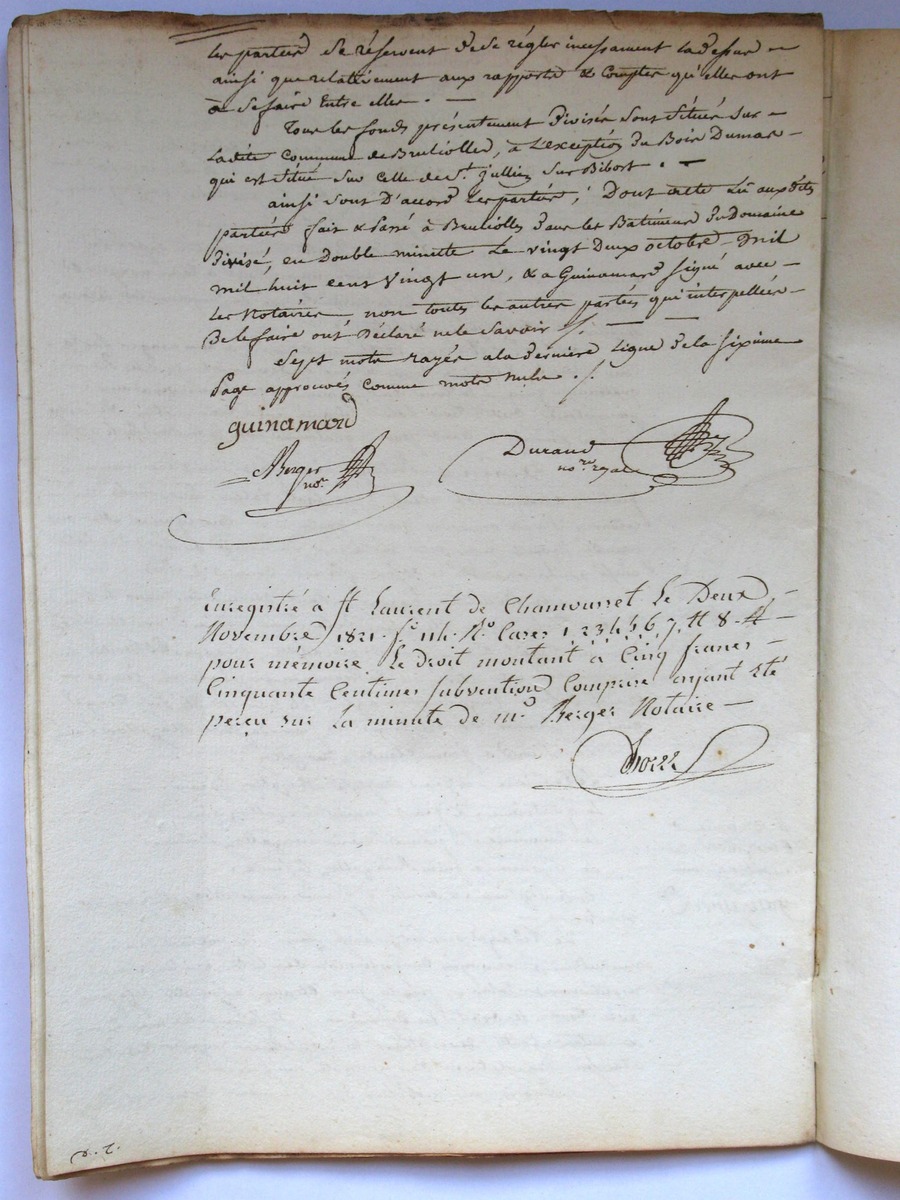 les parties se réservent de se régler incessament la dessus
ainsi que relativement aux rapports & Comptes qu'elles ont
à se faire Entre elles. —
Tous les fonds présentement divisés sont situés sur
ladite commune de Brullioles, à L'exception du Bois Dumas
qui est situé sur celle de St. Jullien sur Bibost. —
ainsi sont D'accord les parties, Dont acte Lû aux dites
parties fait & Passé à Brullioles dans les Batiments du Domaine
divisé, en double minutte Le vingt Deux octobre mil
mil huit cent Vingt un, & a Guinamard signé avec
Les Notaires non toutes les autres parties qui interpellées
De le faire ont Déclaré ne le Savoir
Sept mots rayés a la derniere ligne de la sixieme
Page approuvés comme mots nuls.
guinamard
Berger nore.
Durand
nore. royal
Enregistré a St Laurent de Chamousset Le Deux
Novembre 1821. fo. 114. Ro. Cases 1, 2, 3, 4, 5, 6, 7, & 8.
pour mémoire Le droit montant à Cinq francs
Cinquante Centimes subvention Comprise ayant été
perçu sur la minute de me. Berger Notaire —
d. t.